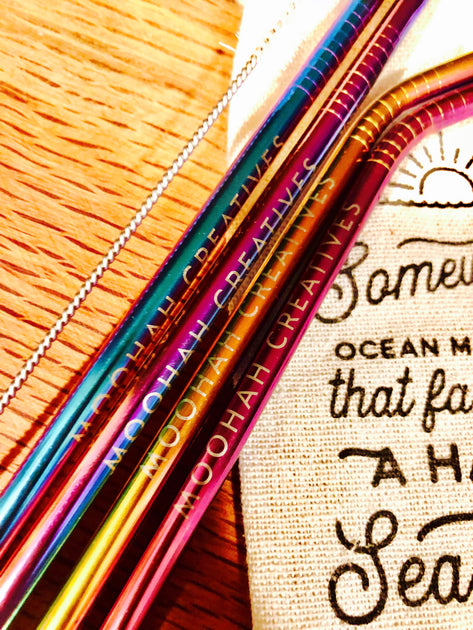 MOOHAH CREATIVES
MOOHAH CREATIVES
MOOHAH CREATIVES
MOOHAH CREATIVES
OCEAN M
that fa
A H
Sea